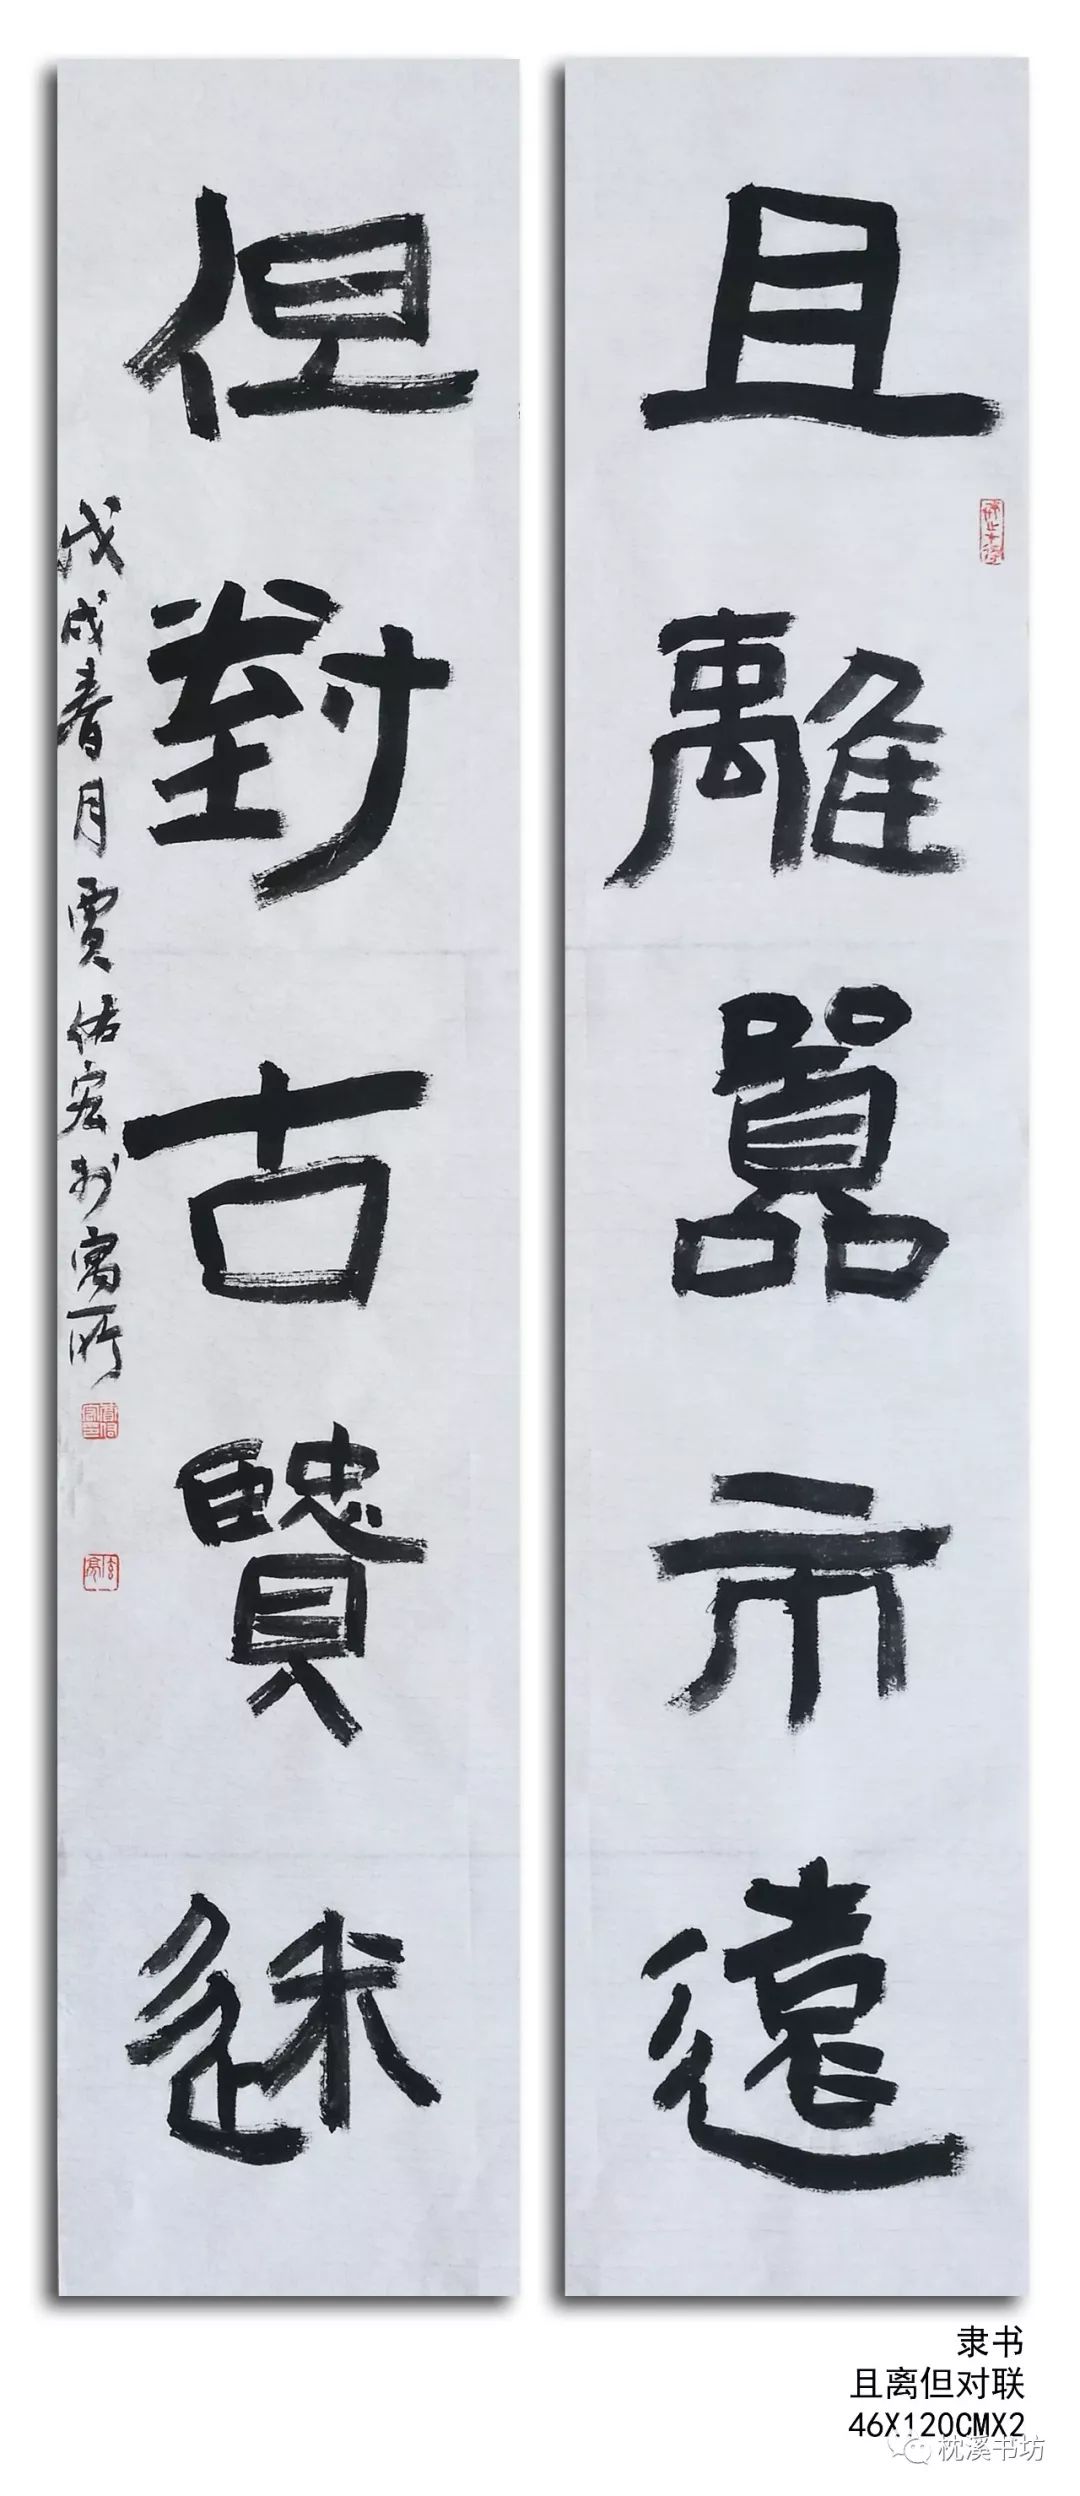 且離囂市遠
但對古賢述
戊戌春月賈佑宏於寓所
隶书
且离但对联
46X120CMX2
枕溪书坊